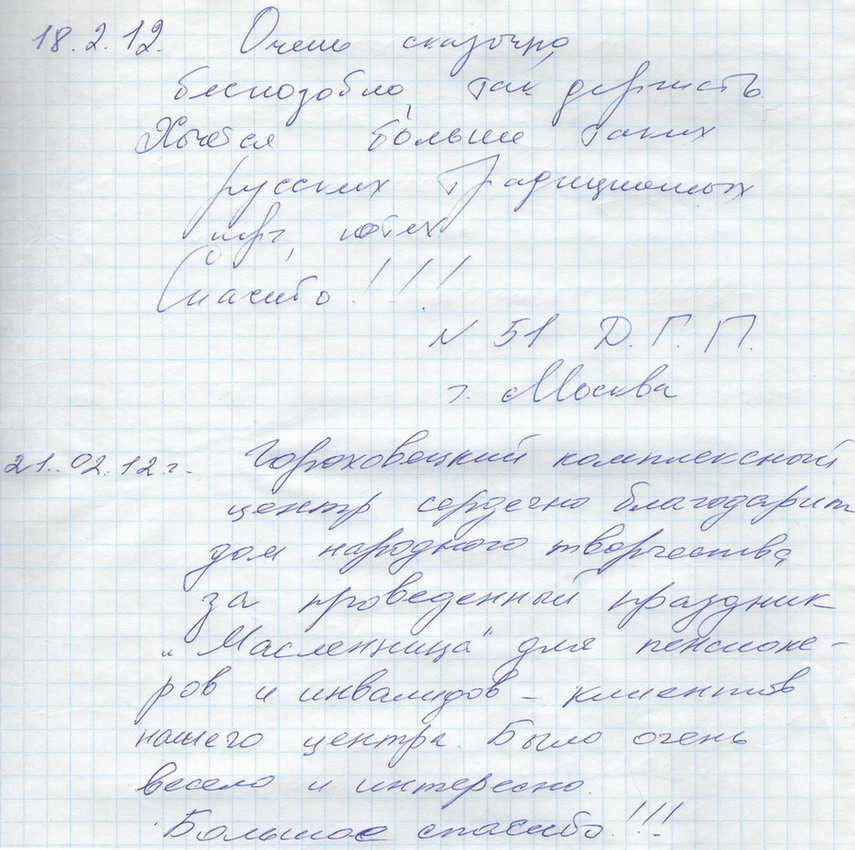 18.2.12. Очень сказочно,
беспозобно, так держать.
Хочется больше таких
русских традиционных
игр,
Спасибо!!!
N 51 Д.Г.П.
г. Москва
21.02.12г. Гороховецкий комплексный
центр сердечно благодарит
дом народного творчества
за проведенный праздник
„Масленница" для пенсионе-
ров и инвалидов – клиентов
нашего центра. Было очень
весело и интересно.
Большое спасибо!!!